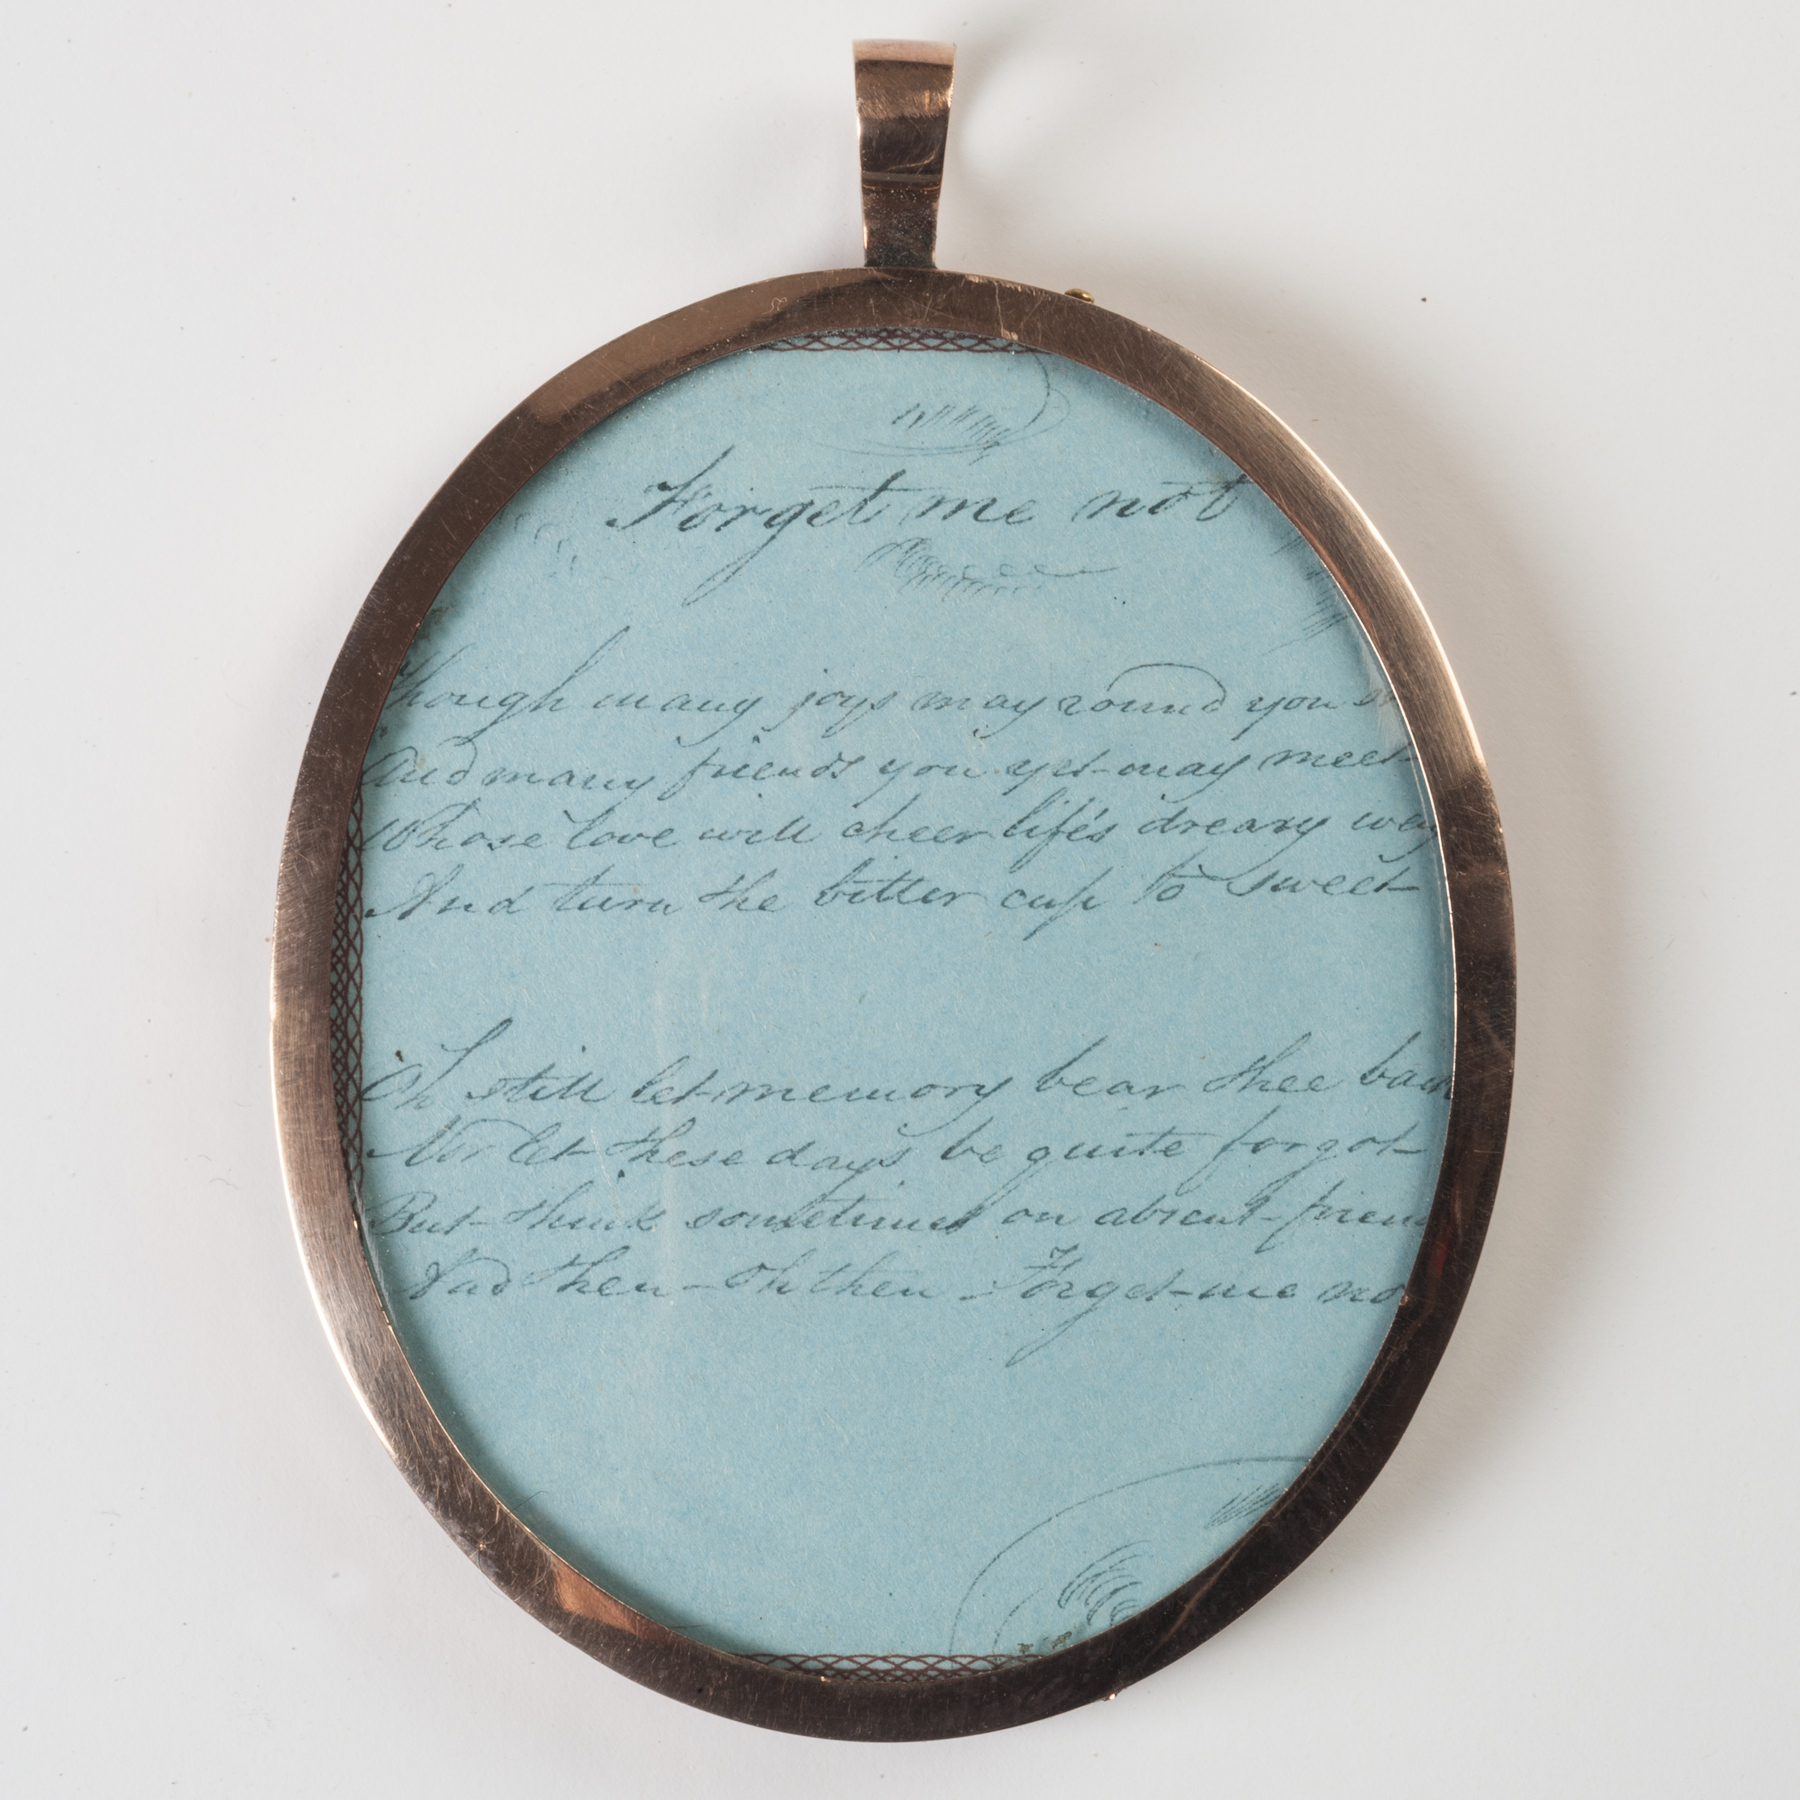 Forget me not
Though many joys may round you
And many friends you yet may meet
Whose love will cheer life's dreary way
And turn the bitter cup to sweet
Oh still let memory bear thee back
Nor let these days be quite forgot
But think sometimes on absent friends
And then - Oh then - Forget me not